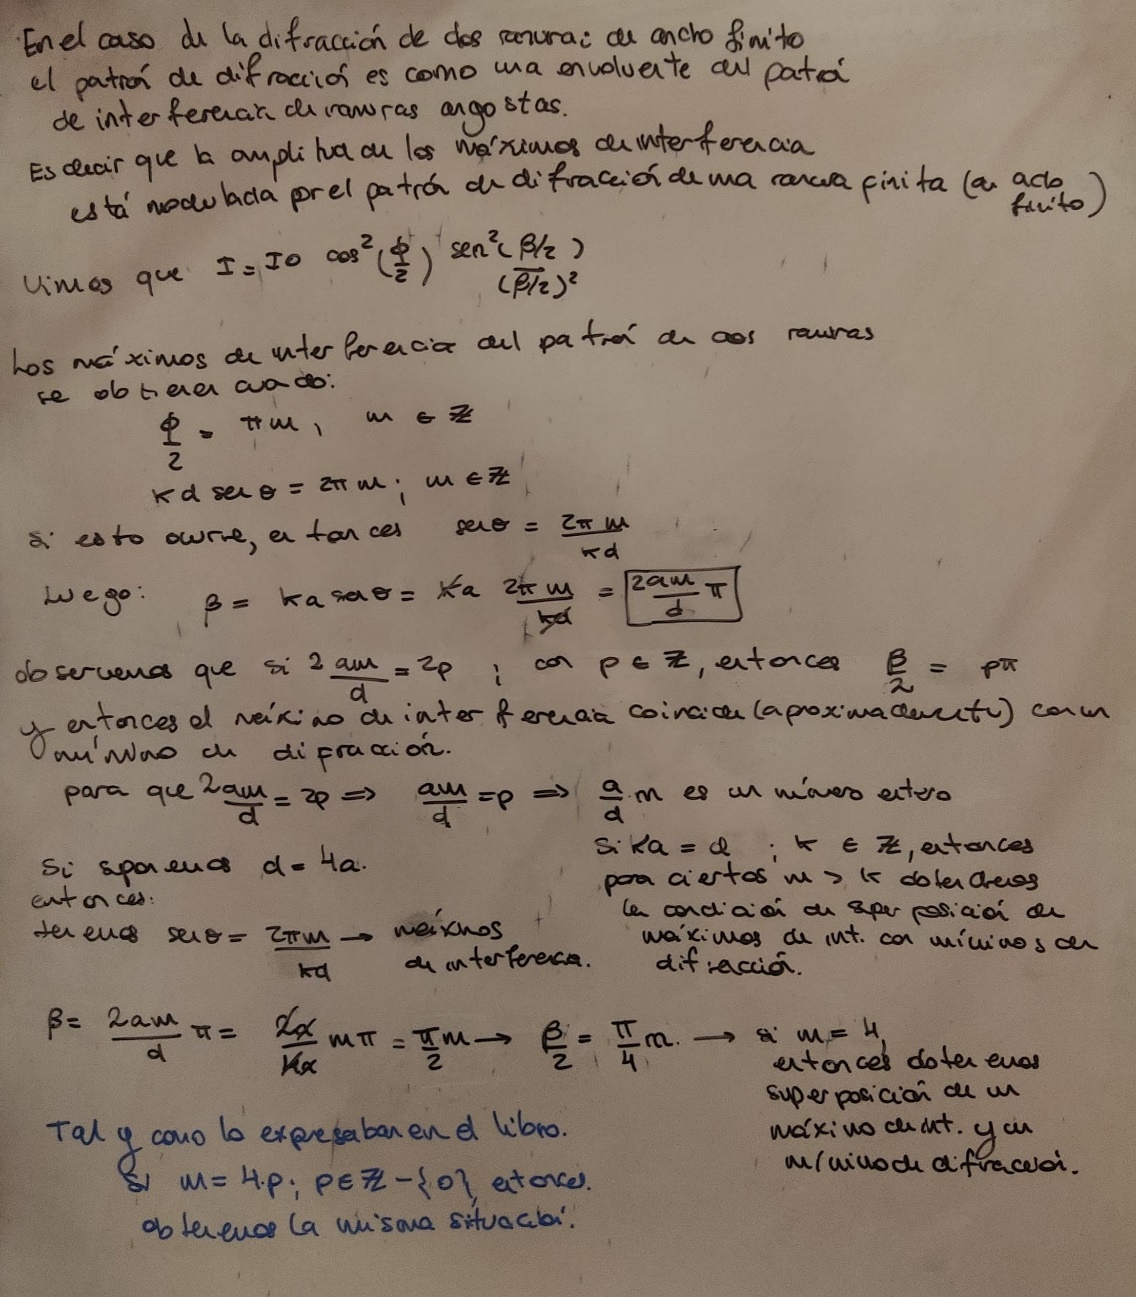 En el caso de la difracción de dos ranuras de ancho finito
el patrón de difracción es como una envolvente del patrón
de interferencia de ranuras angostas.
Es decir que la amplitud de los máximos de interferencia
está modulada por el patrón de difracción de una ranura finita (de ancho
finito)
Vimos que I = I0 cos²(ϕ/2) sen²(β/2) / (β/2)²
Los máximos de interferencia del patrón de dos ranuras
se obtienen cuando:
ϕ/2 = πm, m ∈ ℤ
kd sen θ = 2πm; m ∈ ℤ
Si esto ocurre, entonces sen θ = 2πm/kd
Luego: β = ka sen θ = ka 2πm/kd = 2am/d π
observemos que si 2am/d = 2p; con p ∈ ℤ, entonces β/2 = pπ
y entonces el máximo de interferencia coincide (aproximadamente) con un
mínimo de difracción.
para que 2am/d = 2p ⇒ am/d = p ⇒ a/d m es un número entero
Si ka = d; k ∈ ℤ, entonces
para ciertos m > k obtendremos
la condición de superposición de
máximos de int. con mínimos de
difracción.
Si suponemos d = 4a.
entonces:
tenemos sen θ = 2πm/kd → máximos
de interferencia.
β = 2am/d π = 2a/4a mπ = π/2 m → β/2 = π/4 m. → si m = 4,
entonces obtenemos
superposición de un
máximo de int. y un
mínimo de difracción.
Tal y como lo expresaban en el libro.
Si m = 4.p; p ∈ ℤ - {0}, entonces.
obtenemos la misma situación.